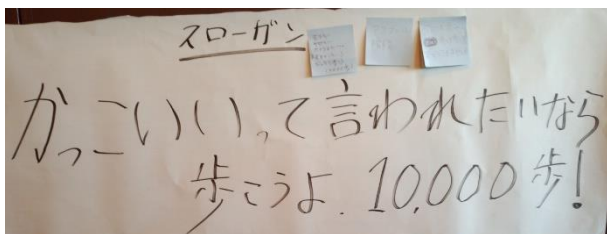 スローガン
かっこいいって言われたいなら
歩こうよ、10,000歩!